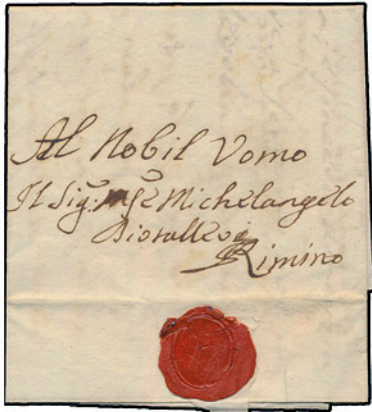 Al Nobil Vomo
Il Sig:re Mse Michelangelo
Diotallevi
Rimino